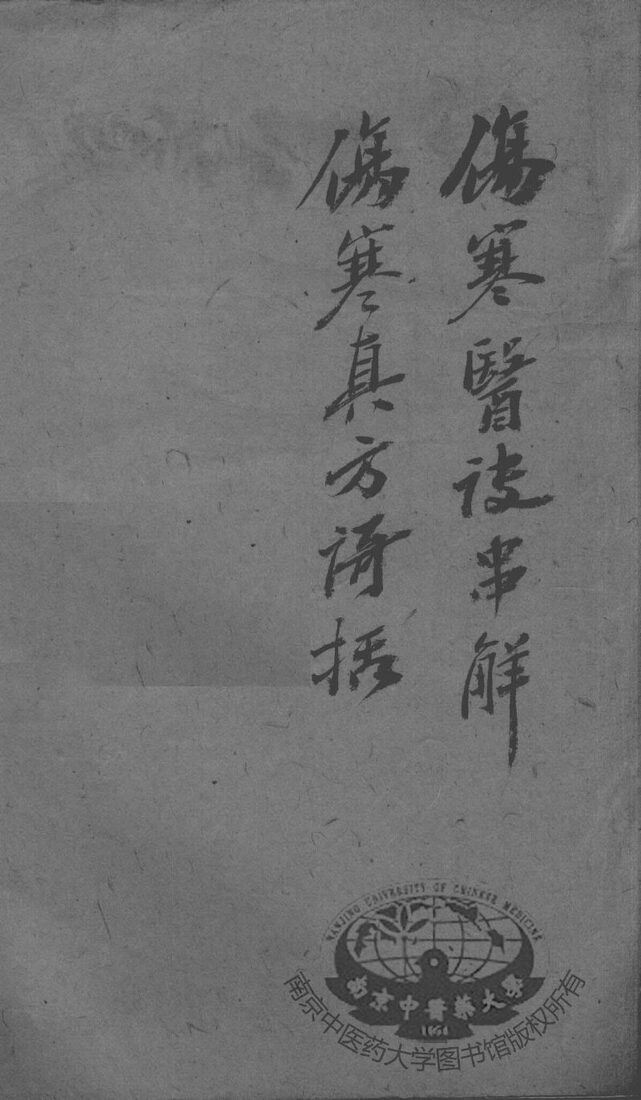 傷寒醫詖串解
傷寒真方謌括
NANJING UNIVERSITY OF CHINESE MEDICINE
南京中醫藥大學
1954
南京中医药大学图书馆版权所有